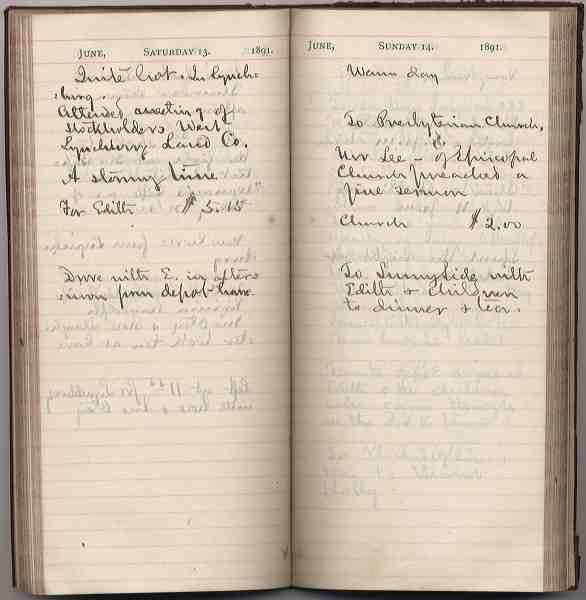 JUNE, SATURDAY 13. 1891.
Quite hot. In Lynch-
burg.
Attended meeting of
Stockholders West
Lynchburg Land Co.
A stormy time
For Edith $5.15
Drove with E. in after
noon from depot home.
JUNE, SUNDAY 14. 1891.
Warm day
To Presbyterian Church,
Mr Lee - of Episcopal
Church preached a
fine sermon
Church $2.00
To Sunnyside with
Edith & children
to dinner & tea.